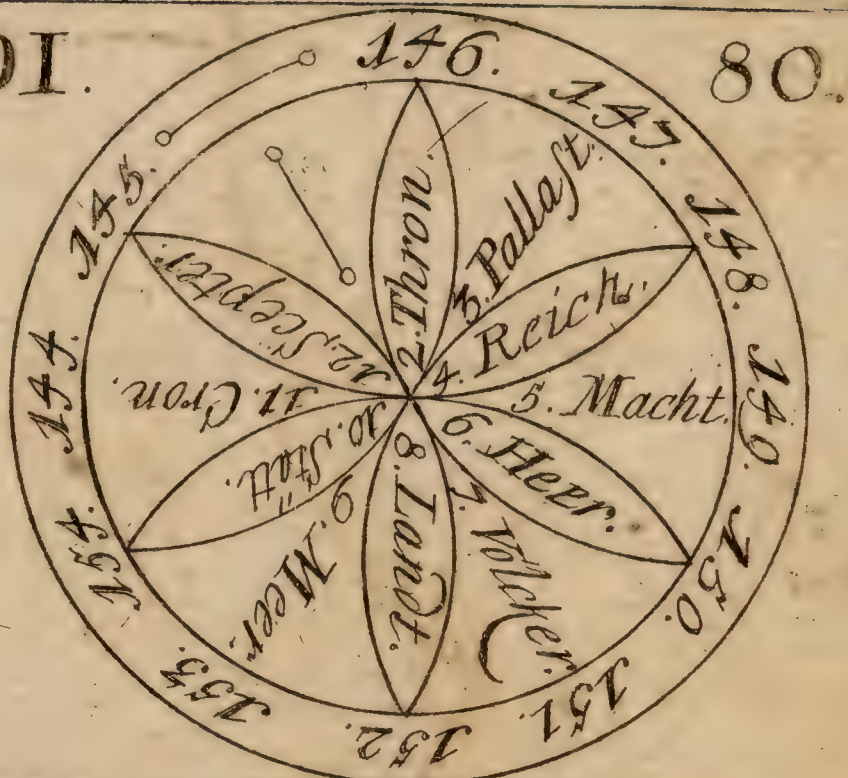 80.
146.
147.
148.
149.
150.
151.
152.
153.
154.
144.
145.
2. Thron.
3. Pallaſt.
4. Reich.
5. Macht.
6. Heer.
7. Völcker.
8. Landt.
9. Meer.
10. Stätt.
11. Cron.
12. Scepter.